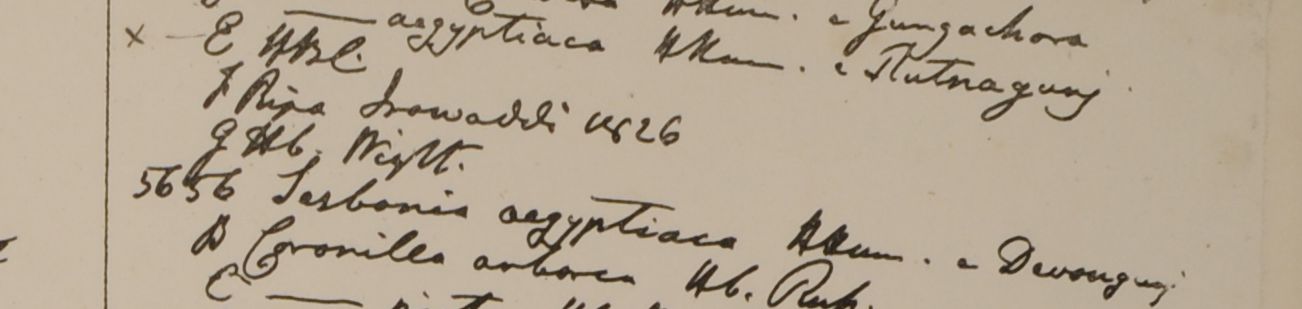 HHam. e Gungachora
x — E — aegyptiaca HHam. e Nutnagunj
HBC.
F Ripa Irawaddi 1826
G Hb. Wight.
5656 Sesbania aegyptiaca HHam. e Dewangunj
B Coronilla arborea Hb. Rub.
C —